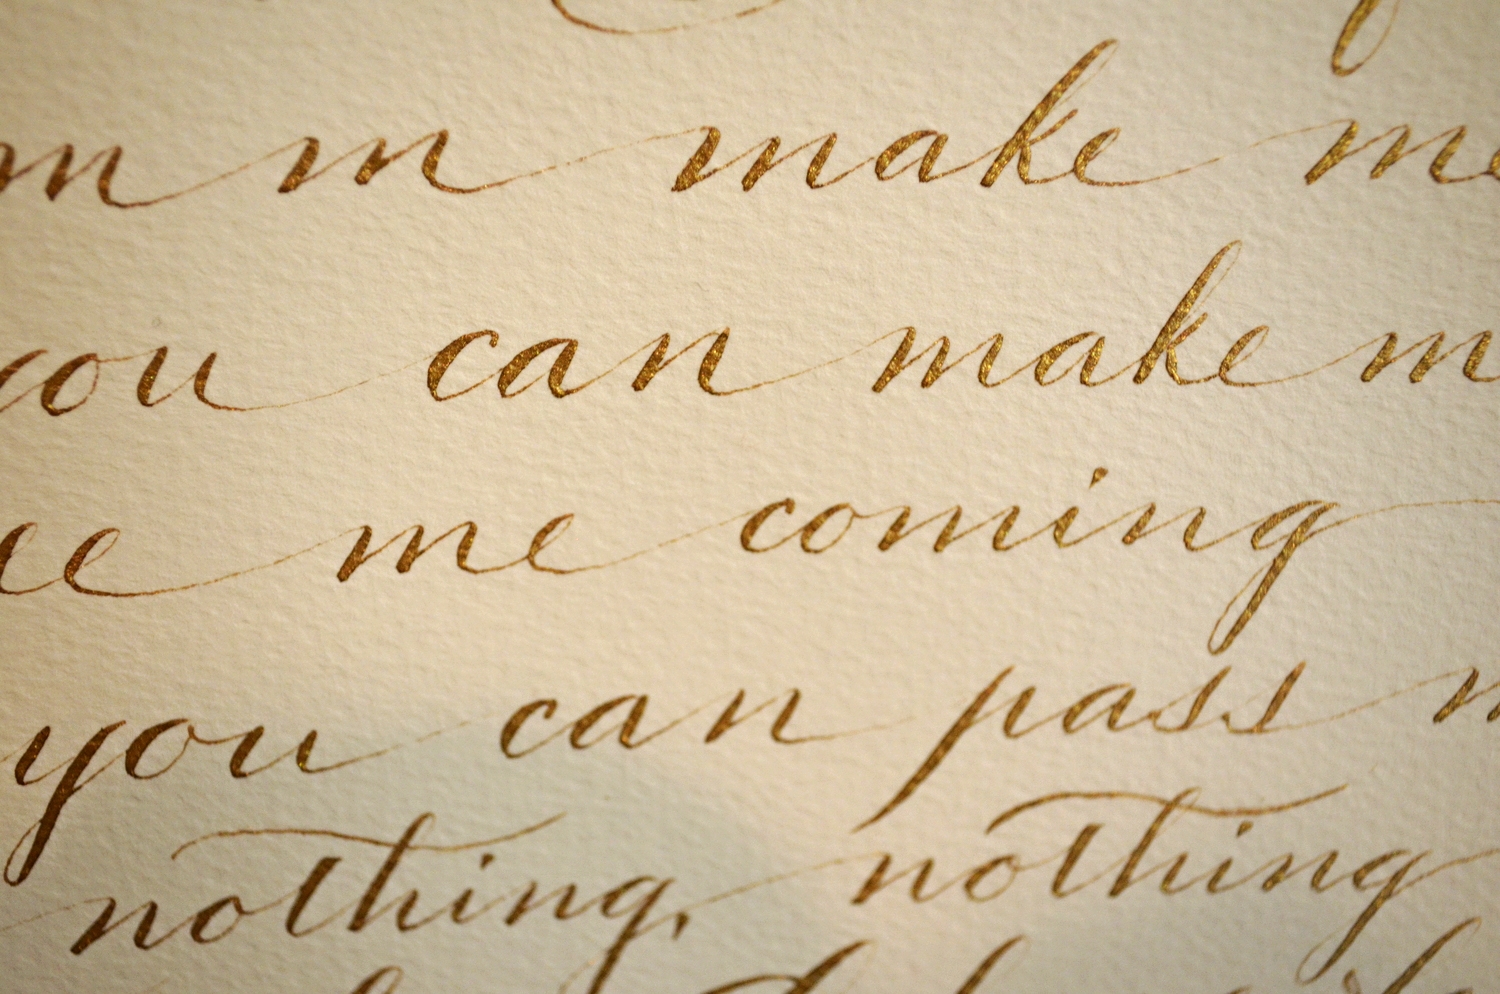 m m make me
you can make m
ee me coming
you can pass m
nothing, nothing